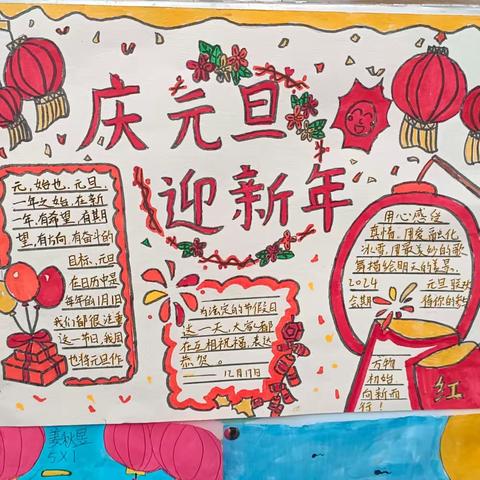 庆元旦
迎新年
元,始也,元旦,
一年之始,在新
一年,有希望,有期
望,有方向,有奋斗的
目标、元旦
在日历中是
每年的1月1日
我们都很注重
这一节日,我国
也将元旦作
为法定的节假日
这一天,大家都
在互相祝福,表达
恭贺。
12月17日
用心感受
真情,用爱融化
冰雪,用最美妙的歌
舞描绘明天的美景。
2024 元旦联欢
会期 待你的
万物
初始
向新而
行!
红
姜秋昱
5X1